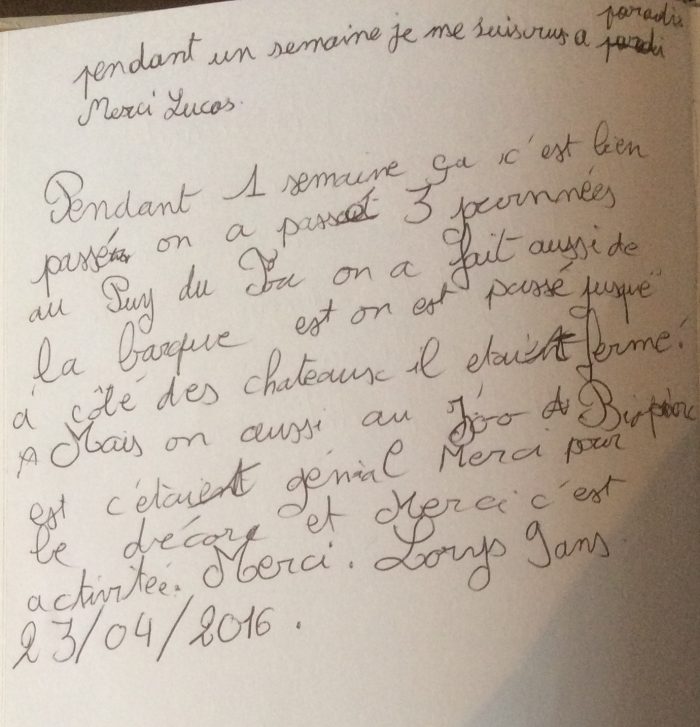 pendant un semaine je me suis vus a paradis
Merci Lucas.
Pendant 1 semaine ça c'est bien
passé on a passé 3 journnées
au Puy du Fou on a fait aussi de
la barque est on est passé jusque
à côté des chateaux il etaient fermé.
Mais on aussi au Zoo Bioparc
est c'étaient génial Merci pour
le décore et Merci c'est
activitée. Merci. Lorys 9ans
23/04/2016.